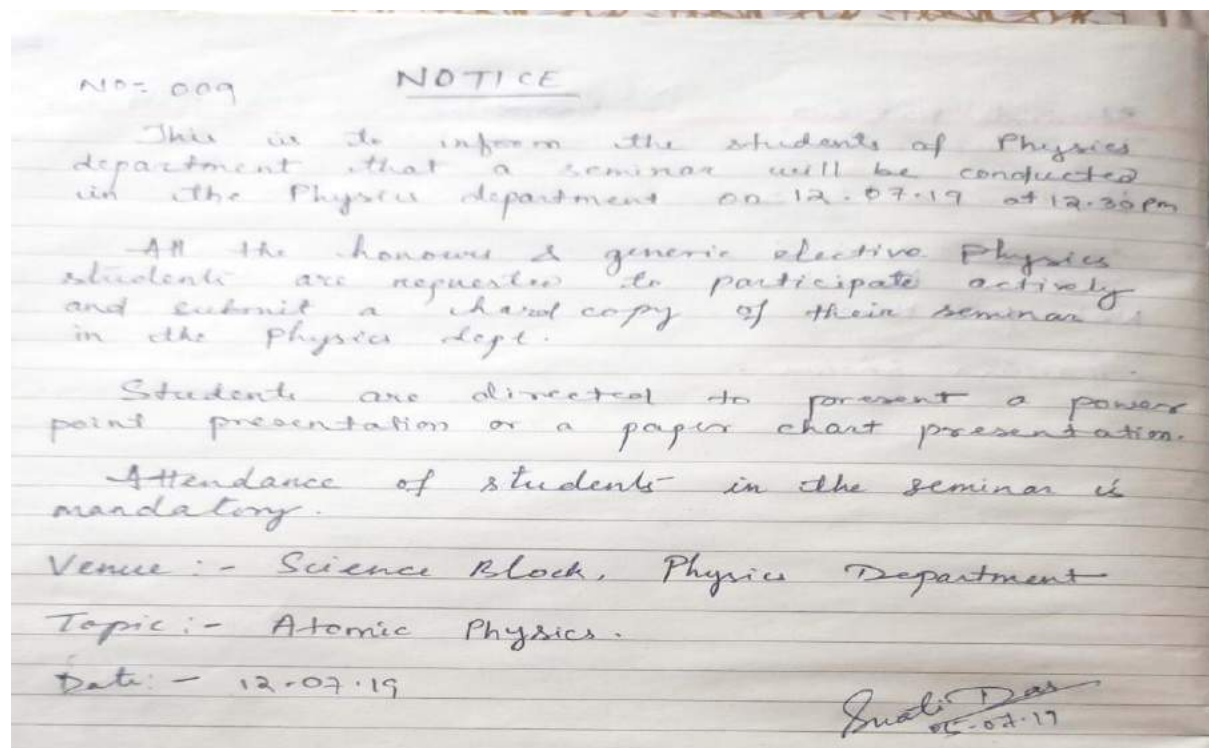 NO= 009 NOTICE
This is to inform the students of Physics
department that a seminar will be conducted
in the Physics department on 12.07.19 at 12.30 pm
All the honours & generic elective Physics
students are requested to participate actively
and submit a hard copy of their seminar
in the Physics dept.
Students are directed to present a power
point presentation or a paper chart presentation.
Attendance of students in the seminar is
mandatory.
Venue :- Science Block, Physics Department
Topic :- Atomic Physics.
Date :- 12-07-19
Swati Das
05-07-19